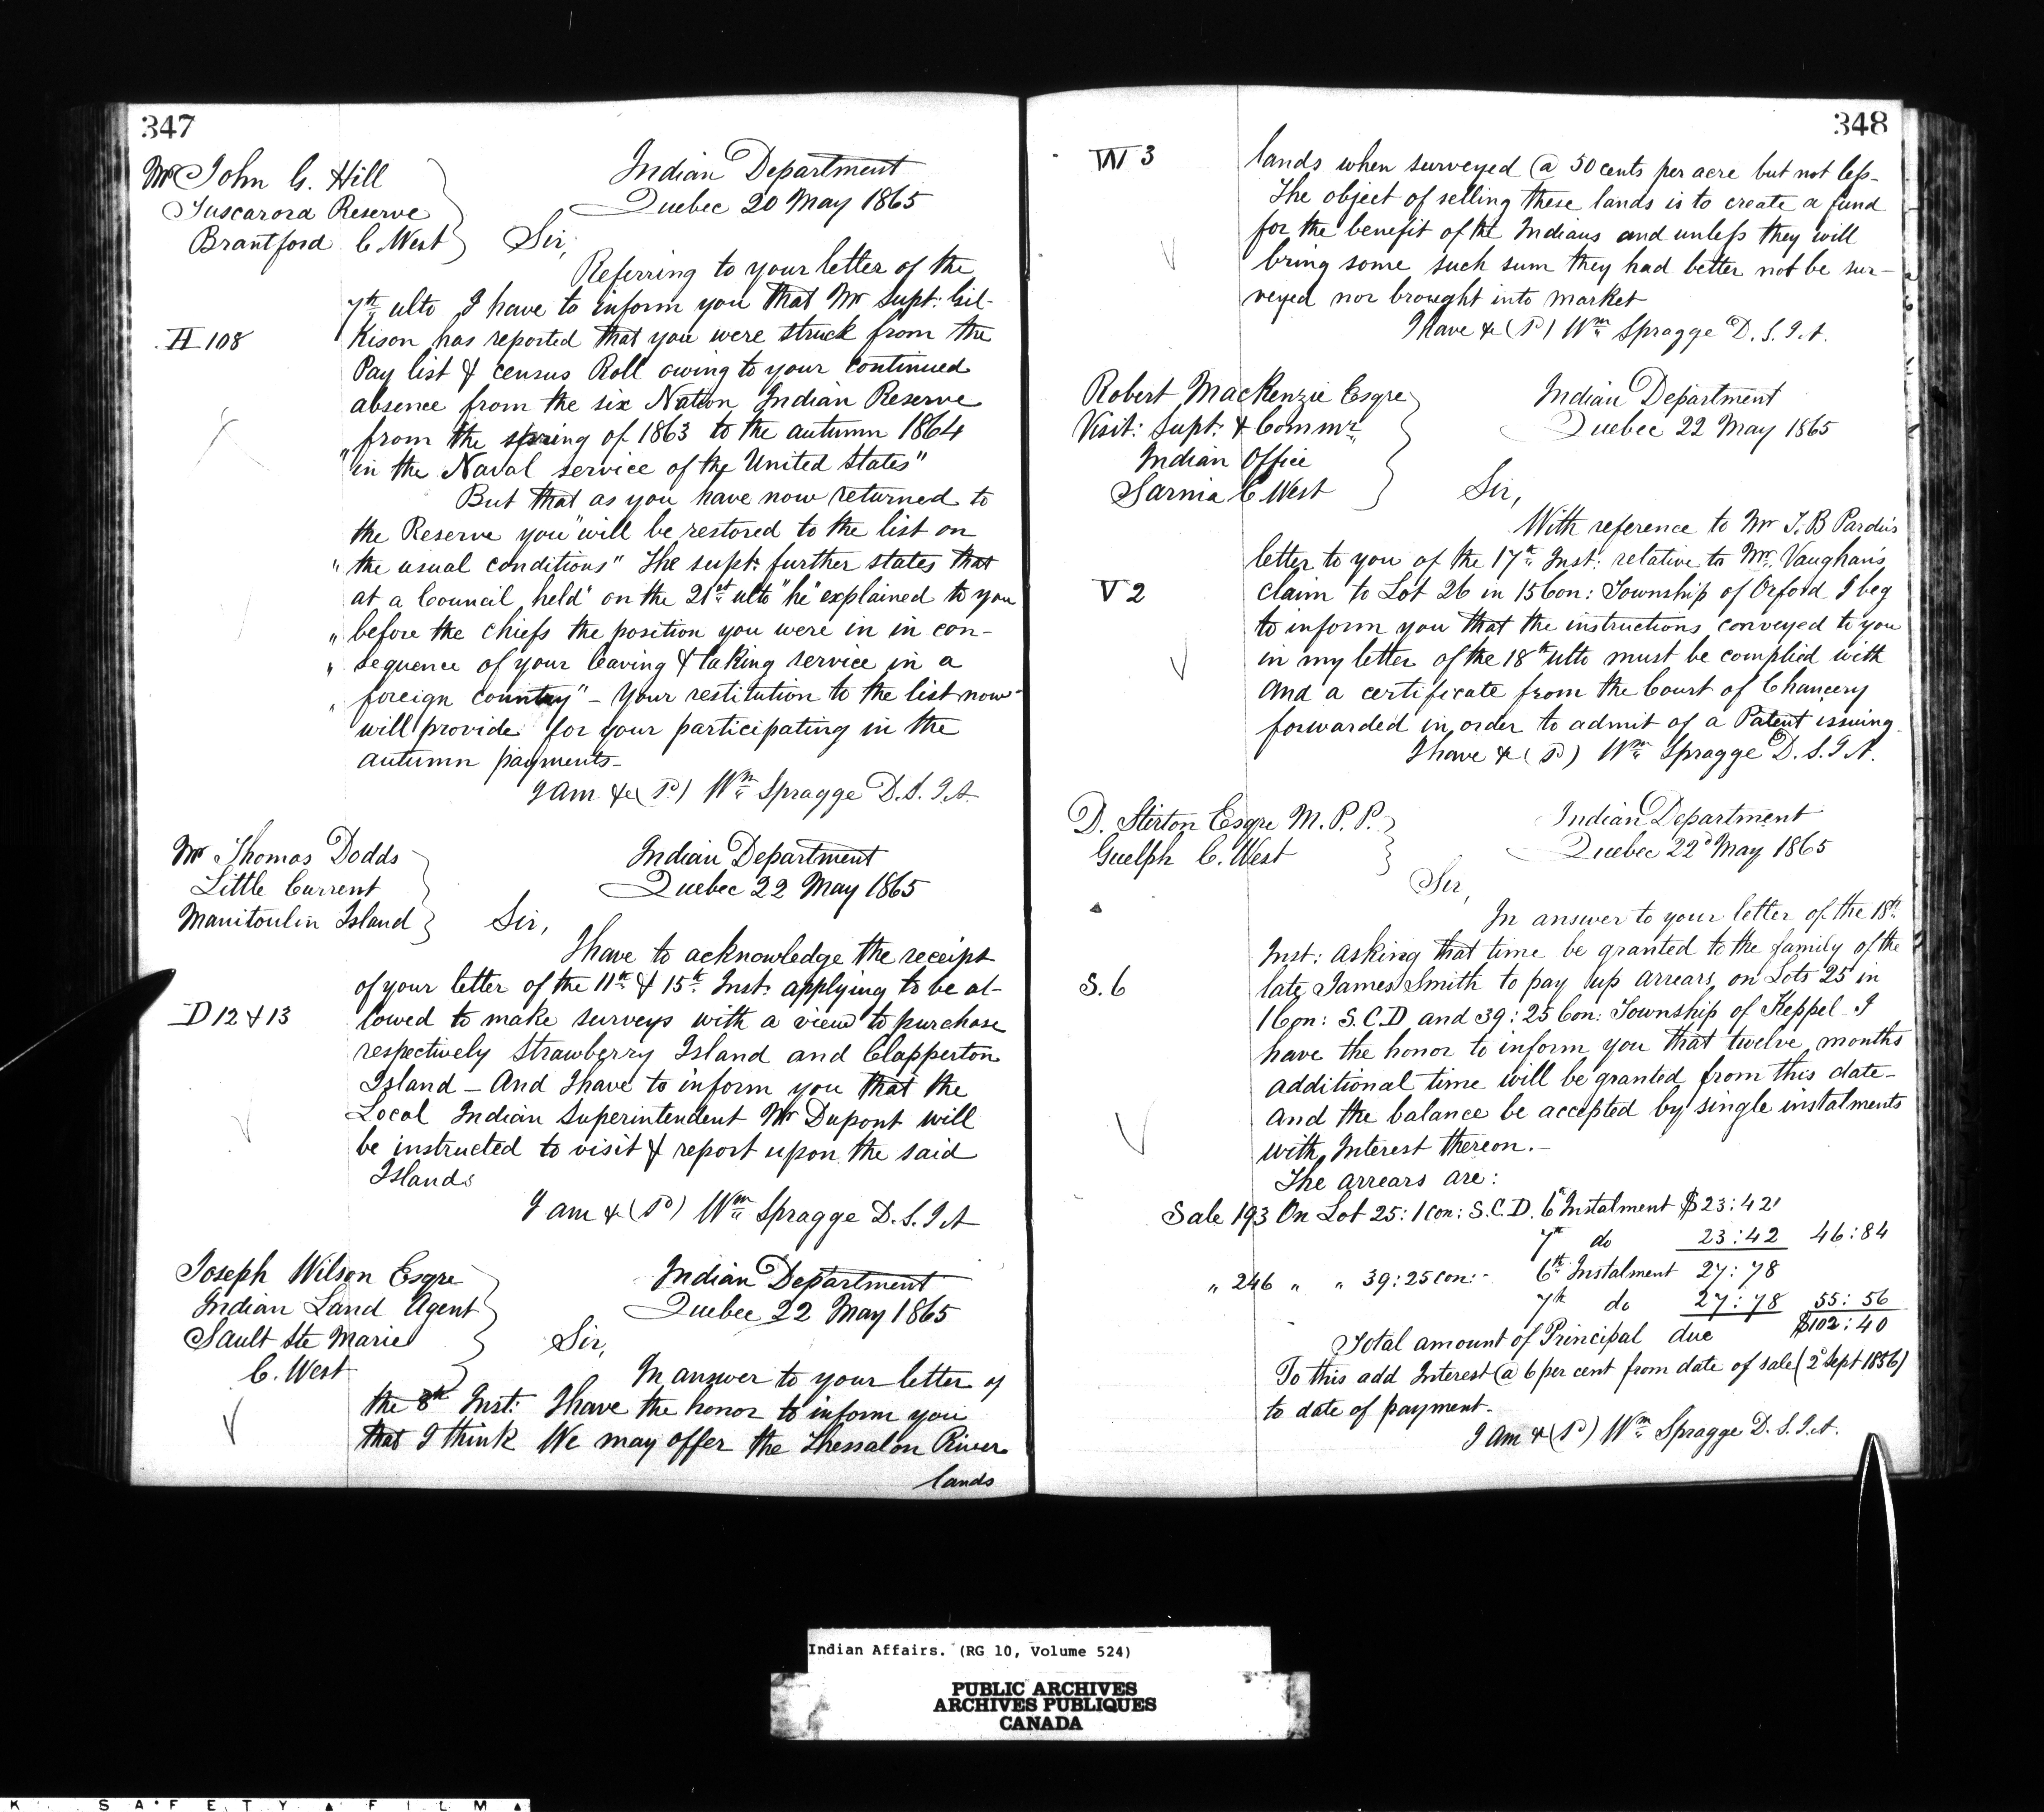 347
Mr John G. Hill
Tuscarora Reserve
Brantford C. West
Indian Department
Quebec 20 May 1865
Sir,
Referring to your letter of the
7th ulto I have to inform you that Mr Supt: Gil-
H 108
kison has reported that you were struck from the
Pay list & census Roll owing to your continued
absence from the six Nation Indian Reserve
"from the spring of 1863 to the autumn 1864
"in the Naval service of the United States"
But that as you have now returned to
the Reserve you "will be restored to the list on
"the usual conditions" The supt: further states that
at a Council held" on the 21st ulto "he" explained to you
"before the chiefs the position you were in in con-
"sequence of your leaving & taking service in a
"foreign country" – Your restitution to the list now
will provide for your participating in the
autumn payments–
I am &c (Sd) Wm Spragge D.S.I.A.
Mr Thomas Dodds
Little Current
Manitoulin Island
Indian Department
Quebec 22 May 1865
Sir,
I have to acknowledge the receipt
of your letter of the 11th & 15th Inst: applying to be al-
D 12 & 13
lowed to make surveys with a view to purchase
respectively Strawberry Island and Clapperton
Island – And I have to inform you that the
Local Indian Superintendent Mr Dupont will
be instructed to visit & report upon the said
Islands
I am & (Sd) Wm Spragge D.S.I.A
Joseph Wilson Esqre
Indian Land Agent
Sault Ste Marie
C. West
Indian Department
Quebec 22 May 1865
Sir,
In answer to your letter of
the 8th Inst: I have the honor to inform you
that I think We may offer the Thessalon River
lands
348
W 3
lands when surveyed @ 50 cents per acre but not less–
The object of selling these lands is to create a fund
for the benefit of the Indians and unless they will
bring some such sum they had better not be sur-
veyed nor brought into market
I have & (Sd) Wm Spragge D.S.I.A.
Robert MacKenzie Esqre
Visit: Supt: & Commr
Indian Office
Sarnia C. West
Indian Department
Quebec 22 May 1865
Sir,
With reference to Mr T. B Pardee's
letter to you of the 17th Inst: relative to Mr. Vaughan's
V 2
claim to Lot 26 in 15 Con: Township of Orford I beg
to inform you that the instructions conveyed to you
in my letter of the 18th ulto must be complied with
And a certificate from the Court of Chancery
forwarded in order to admit of a Patent issuing
I have & (Sd) Wm Spragge D.S.I.A.
D. Stirton Esqre M.P.P.
Guelph C. West
Indian Department
Quebec 22d May 1865
Sir,
In answer to your letter of the 18th
Inst: asking that time be granted to the family of the
S. 6
late James Smith to pay up arrears on Lots 25 in
1 Con: S.C.D and 39: 25 Con: Township of Keppel I
have the honor to inform you that twelve months
additional time will be granted from this date–
And the balance be accepted by single instalments
with Interest thereon.–
The arrears are:
Sale 193 On Lot 25: 1 con: S.C.D. 6th Instalment $23:42
7th do 23:42 46:84
" 246 " " 39: 25 con: - 6th Instalment 27:78
7th do 27:78 55:56
Total amount of Principal due $102:40
To this add Interest @ 6 per cent from date of sale (2d Sept 1856)
to date of payment–
I am & (Sd) Wm Spragge D.S.I.A.
Indian Affairs. (RG 10, Volume 524)
PUBLIC ARCHIVES
ARCHIVES PUBLIQUES
CANADA
K SAFETY ▲ FILM ▲